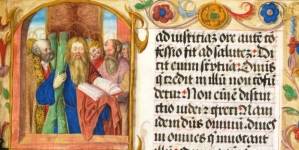 ad iusticiam ore autē cō
fessio fit ad salutē Di
cit enim scriptura Omnis
q̄ credit in illū nō confū
detur Non enī ē distin
ctio iudei et greci Nam
idem dn̄s omniū diues
in omnes qui inuocant